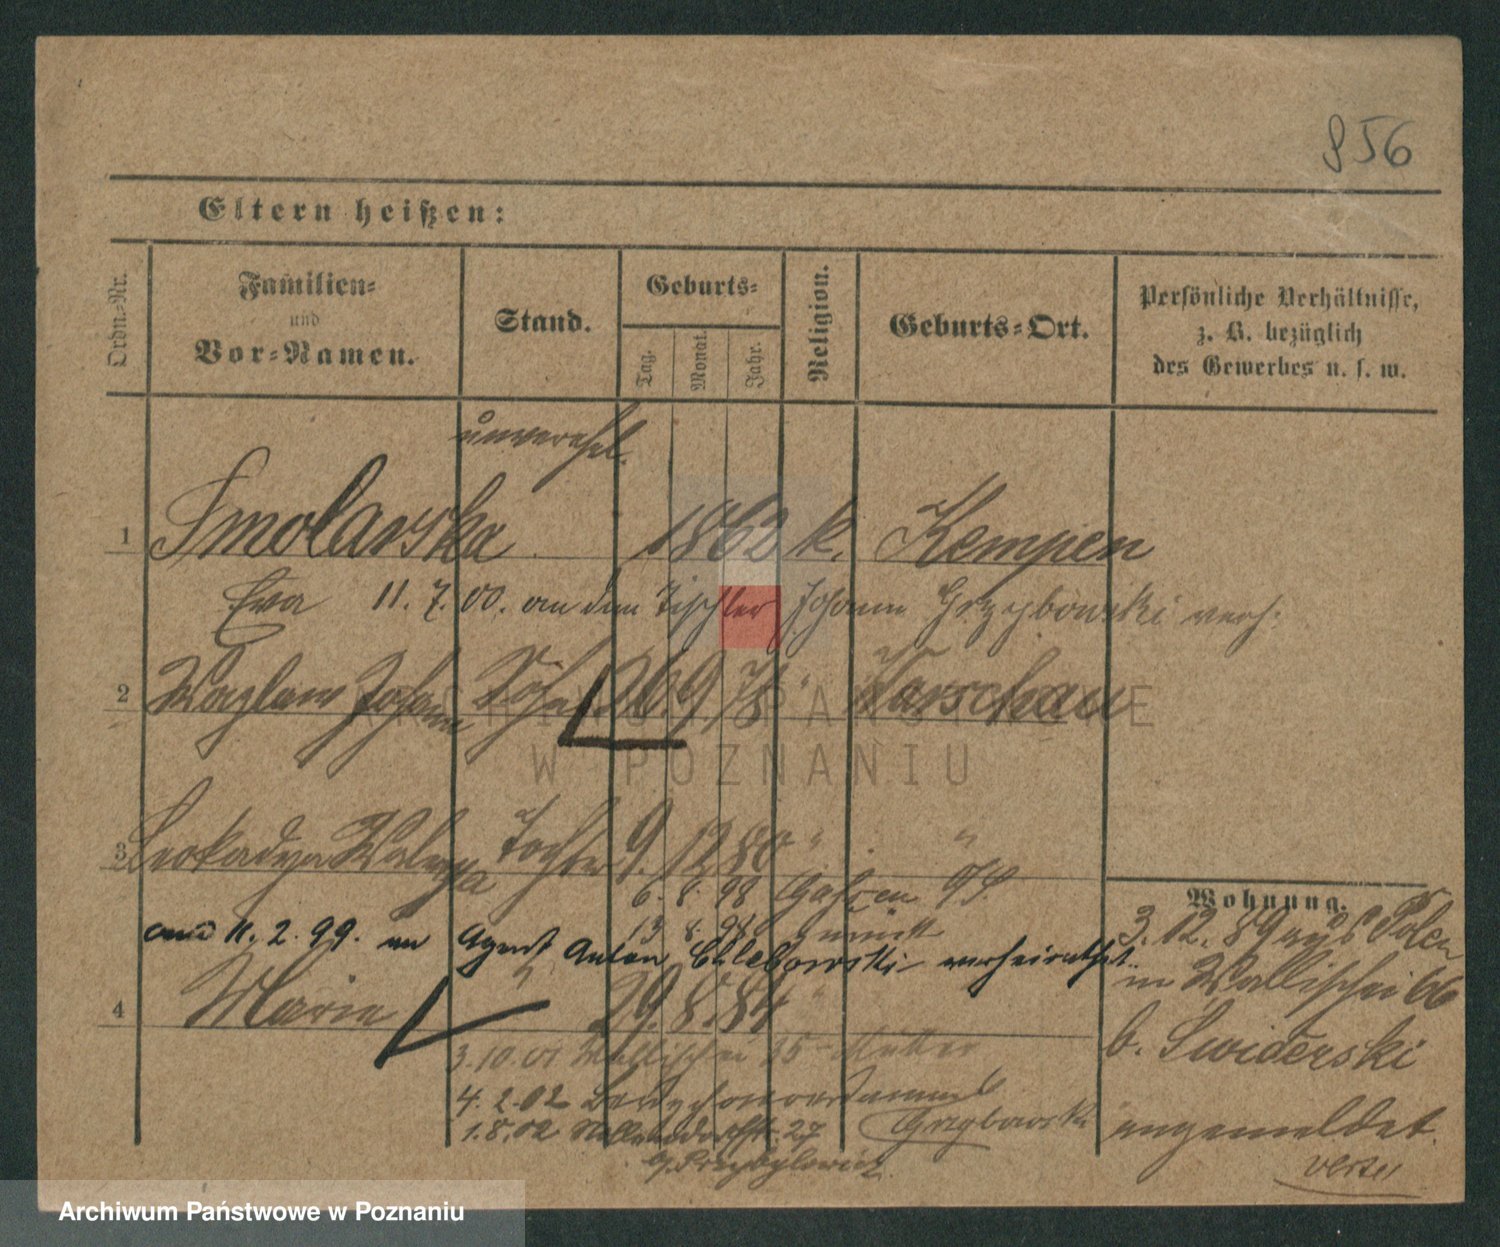 856
Eltern heißen:
Ordn.-Nr.
Familien-
und
Vor-Namen.
Stand.
Geburts-
Tag.
Monat.
Jahr.
Religion.
Geburts-Ort.
Persönliche Verhältnisse,
z. B. bezüglich
des Gewerbes u. s. w.
unverehel.
1 Smolarska 1862 k. Kempen
Eva 11. 7. 00. an den Tischler Johann Grzybowski verh.
2 Johann Sohn 26. 9. 78 " Warschau
3 Leokadya Tochter 9. 12 80 " "
6. 8. 98
13. 8. 98 zurück
am 11. 2. 99. an Agent Anton Chlebowski verheirathet.
4 Marie " 29. 8. 84 "
3. 10. 01 Wallischei 15 Mutter
4. 2. 02
1. 8. 02 27 Grzybowski
b. Przybylowicz
Wohnung.
3. 12. 89 aus Polen
in Wallischei 66
b. Swiderski
angemeldet.
ARCHIWUM PAŃSTWOWE
W POZNANIU
Archiwum Państwowe w Poznaniu